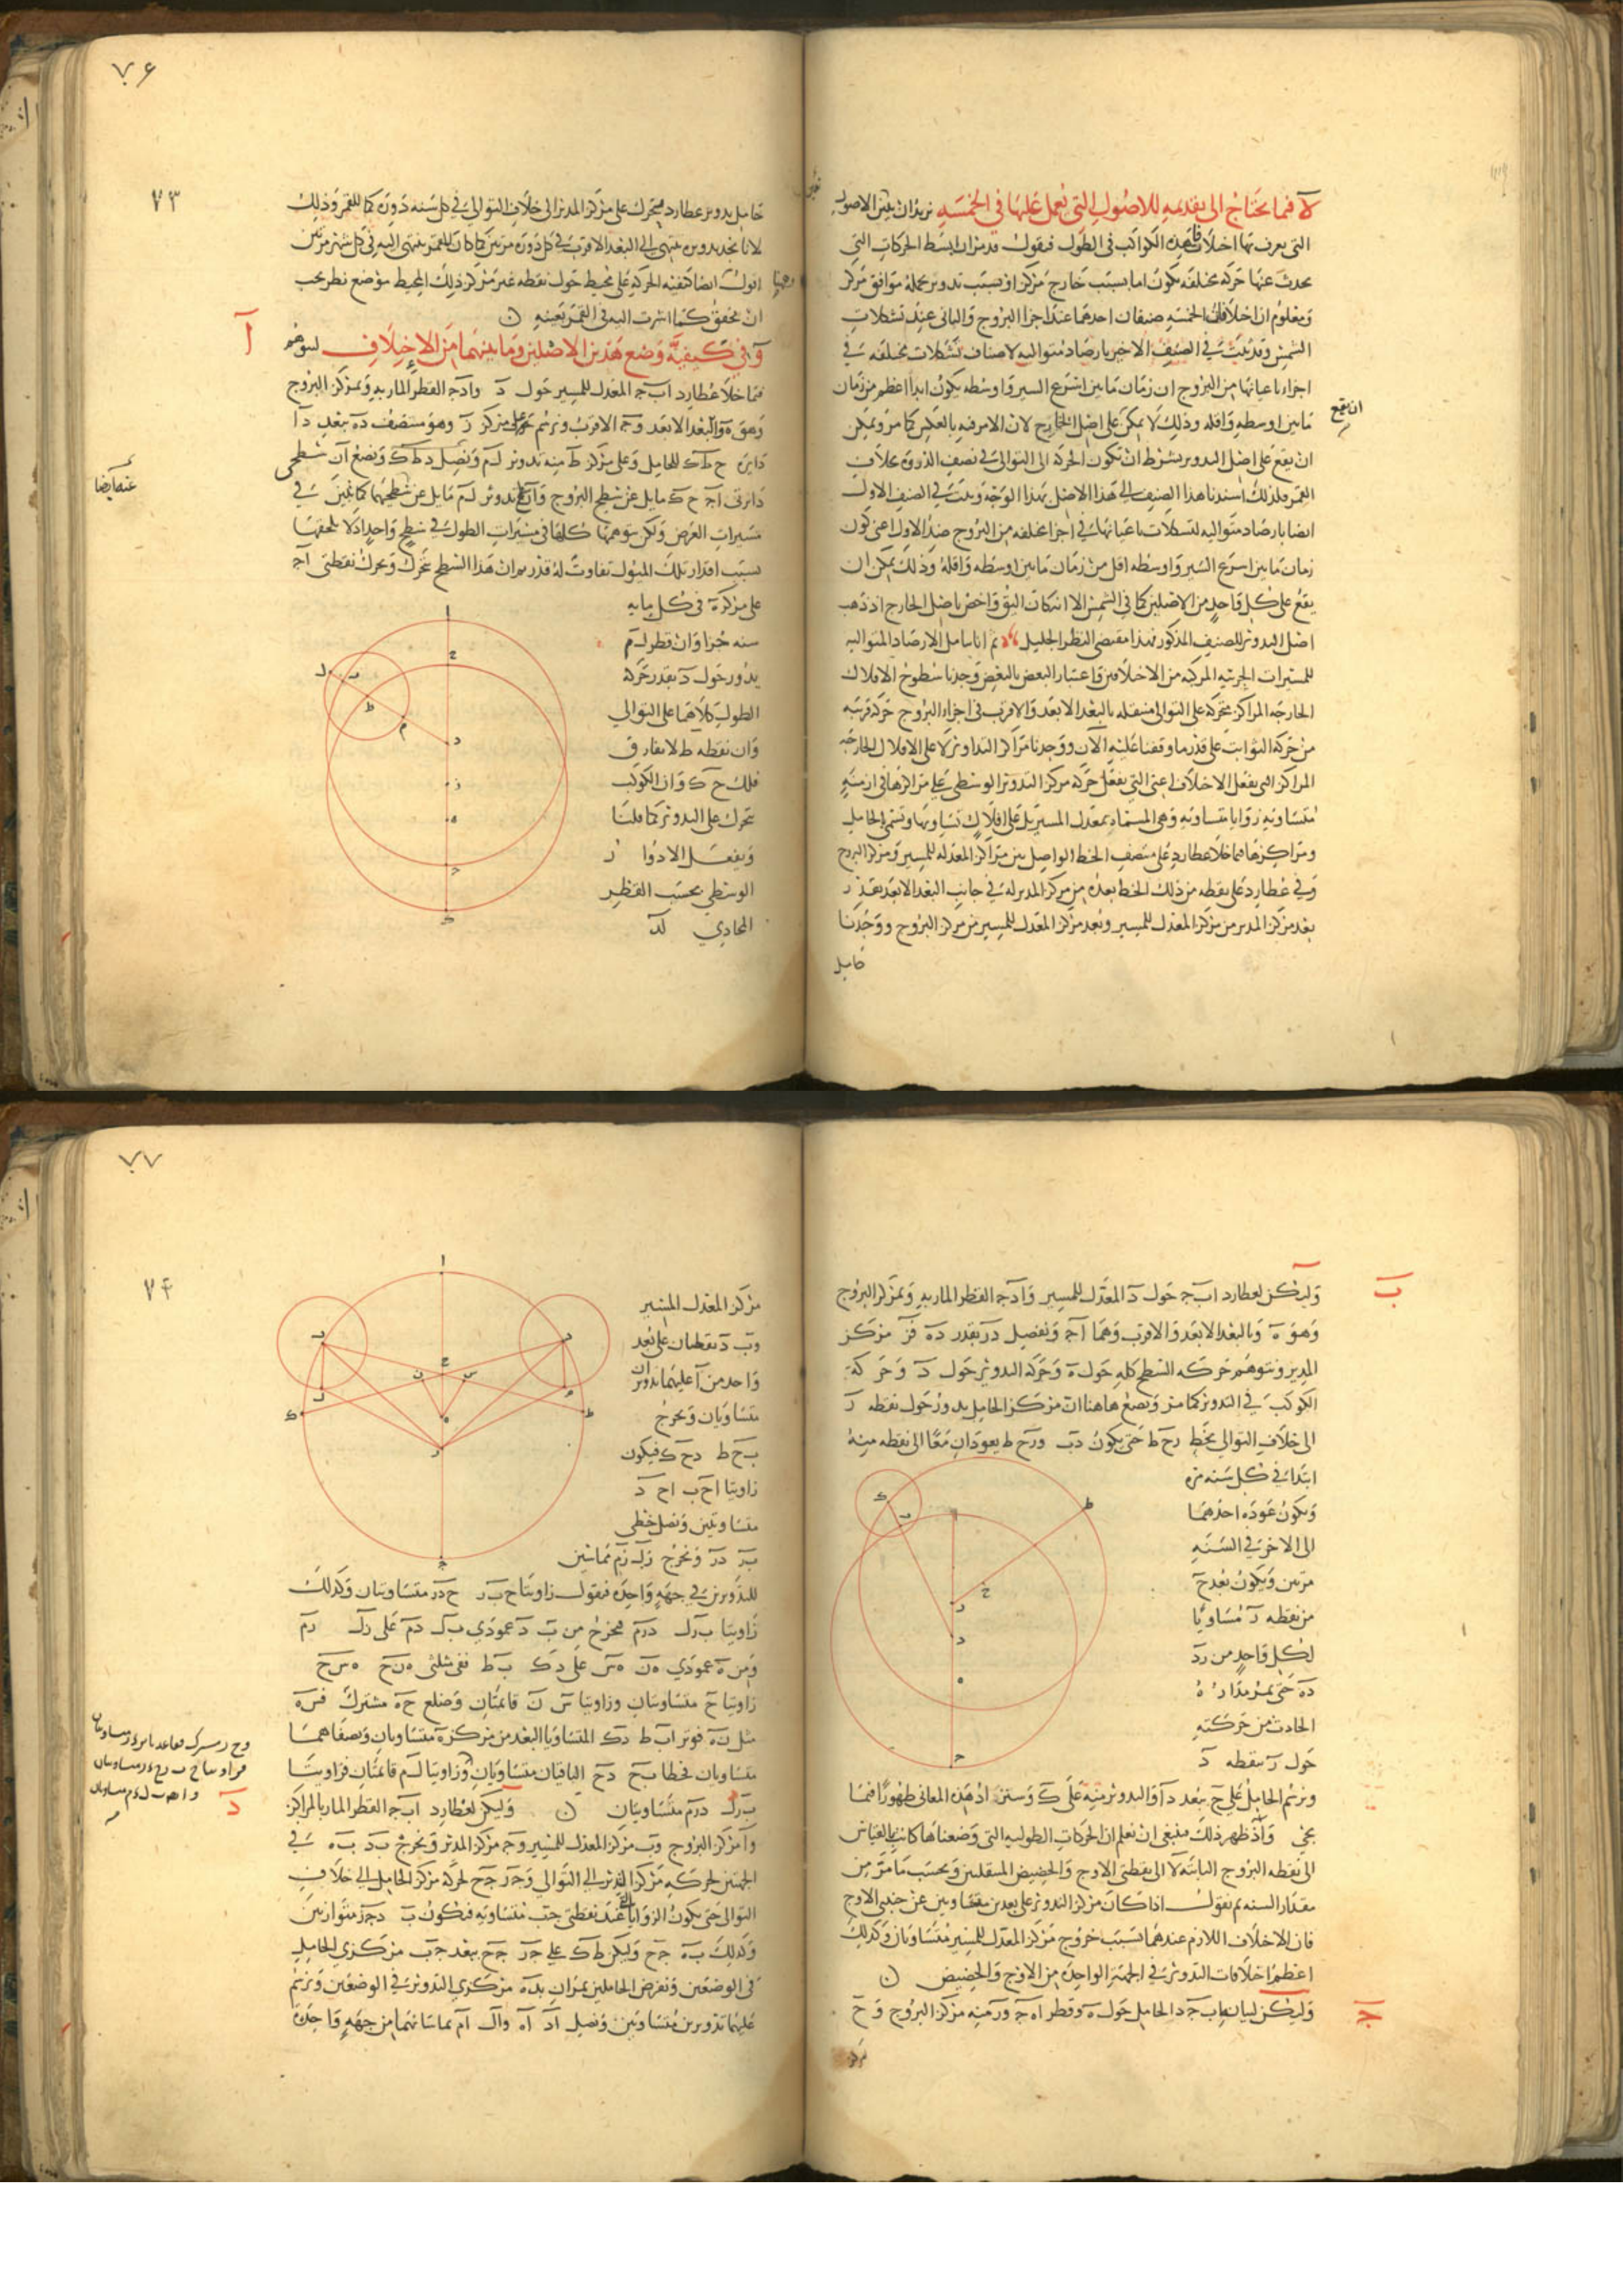 لا فيما يحتاج الى تقديمه للاصول التي يعمل عليها في الخمسة نريد ان نبين الاصول
التي يعرف بها اختلافات هذه الكواكب في الطول فنقول قد مر ان ابسط الحركات التي
يحدث عنها حركة مختلفة يكون اما بسبب خارج مركز او بسبب تدوير يحمله موافق مركز
ومعلوم ان اختلافات الخمسة صنفان احدهما عند اجزا البروج والثاني عند تشكلات
الشمس وقد تبين في الصنف الاخير بارصاد متواليه لاصناف تشكلات مختلفه في
اجزاء باعيانها من البروج ان زمان ما بين اسرع السير واوسطه يكون ابدا اعظم من زمان
ما بين اوسطه واقله وذلك لا يمكن على اصل الخارج لان الامر فيه بالعكس كما مر ويمكن
ان يقع على اصل التدوير بشرط ان تكون الحركة الى التوالي في نصف الذروة بخلاف
القمر فلذلك اسندنا هذا الصنف الى هذا الاصل بهذا الوجه وتبين في الصنف الاول
ايضا بارصاد متواليه لتشكلات باعيانها في اجزا مختلفه من البروج ضد الاول اعني كون
زمان ما بين اسرع السير واوسطه اقل من زمان ما بين اوسطه واقله وذلك يمكن ان
يقع على كل واحد من الاصلين كما في الشمس الا انه كان اليق واخص باصل الخارج اذ ذهب
اصل التدوير للصنف المذكور فهذا مقتضى النظر الجليل ثم انا بتامل الارصاد المتواليه
للمسيرات الجزئيه المركبه من الاختلافين واعتبار البعض بالبعض وجدنا سطوح الافلاك
الخارجه المراكز متحركة على التوالي منتقله بالبعد الابعد والاقرب في اجزاء البروج حركة قريبه
من حركة الثوابت على قدر ما وقفنا عليه الآن ووجدنا مراكز التداوير لا على الافلاك الخارجه
المراكز التي يفعل الاختلاف اعني التي يفعل حركة مركز التدوير الوسطى على مراكزها في ازمنه
متساويه زوايا متساويه وهي المسماه بمعدل المسير بل على افلاك تساويها وتسمى الحامل
ومراكزها فيما خلا عطارد على منتصف الخط الواصل بين مراكز المعدله للمسير ومركز البروج
وفي عطارد على نقطه من ذلك الخط بعده من مركز المدير له في جانب البعد الابعد بقدر
بعد مركز المدير من مركز المعدل للمسير وبعد مركز المعدل للمسير من مركز البروج ووجدنا
حامل
ان يقع
٧٦
٧٣
حامل تدوير عطارد يتحرك على مركز المدير الى خلاف التوالي في كل سنه دورة كما للقمر وذلك
لانا نجد تدويره ينتهي الى البعد الاقرب في كل دوره مرتين كما كان للقمر ينتهي اليه في كل شهر مرتين
اقول ايضا كيفيه الحركة على محيط حول نقطه غير مركز ذلك المحيط موضع نظر يجب
ان يحقق كما اشرت اليه في القمر بعينه ن
ا
و في كيفيه وضع هذين الاصلين وما يتبعهما من الاختلاف ليتوهم
فيما خلا عطارد اب ج المعدل للمسير حول د و ا د ج القطر المار به وبمركز البروج
وهو ه و ا البعد الابعد و ج الاقرب ونرسم على مركز ز وهو منتصف د ه ببعد د ا
دايرة ح ط ك للحامل وعلى مركز ط منه تدوير ل م ونصل د ط ك ونضع ان سطحي
دائرتي ا ج ح ك مايل عن سطح البروج وان تدوير ل م مايل عن سطحيهما كما نبين في
مسيرات العرض ولكن نتوهمها كلها في مسيرات الطول في سطح واحد اذ لا يلحقها
بسبب اقدار تلك الميول تفاوت له قدر وان هذا السطح يتحرك ويحرك نقطتي ا ج
على مركز ه في كل مايه
سنه جزا وان قطر ل م
يدور حول د بقدر حركة
الطول كلاهما على التوالي
وان نقطه ط لا يفارق
فلك ح ك وان الكوكب
يتحرك على التدوير كما قلنا
ويفعل الادوار
الوسطى بحسب القطر
المحاذي لد
عنه ايضا
ا
ح
ل
ط
م
د
ز
ه
ج
ك
ب
وليكن لعطارد اب ج حول د المعدل للمسير و ا د ج القطر المار به وبمركز البروج
وهو ه وبالبعد الابعد والاقرب وهما ا ج ونفصل د ز بقدر د ه فز مركز
المدير ونتوهم حركه السطح كله حول ه وحركة التدوير حول د وحركة
الكوكب في التدوير كما مر ونضع هاهنا ان مركز الحامل يدور حول نقطه ز
الى خلاف التوالي بخط زح ط حتى يكون دب وزح ط يعودان معا الى نقطه منه
ابتدا في كل سنه مرة
ويكون عودة احدهما
الى الاخر في السنه
مرتين ويكون بعد ح
من نقطه ز مساويا
لكل واحد من ز د
د ه حتى يمر مداره
الحادث من حركته
حول ز بنقطه د
ونرسم الحامل على ح ببعد د ا والتدوير منه على ك وسنبين اذ هذه المعاني ظهورا فيما
يجي واذ ظهر ذلك فينبغي ان نعلم ان الحركات الطوليه التي وضعناها كانت بالقياس
الى نقطه البروج الثابته لا الى نقطتي الاوج والحضيض المنتقلين وبحسب ما مر من
مقدار السنه ثم نقول اذا كان مركز التدوير على بعدين متساويين عن جنبي الاوج
فان الاختلاف اللازم عندهما بسبب خروج مركز المعدل للمسير متساويان وكذلك
اعظم اختلافات التدوير في الجهة الواحدة من الاوج والحضيض ن
ج
وليكن لبيانه اب ج د الحامل حول ه وقطر ا ه ج وز منه مركز البروج وح
مركز
٧٧
٧٤
مركز المعدل المسير
وب د نقطتان على بعد
واحد من ا عليهما تدويران
متساويان ونخرج
ب ح ط دح ك فيكون
زاويتا اح ب اح د
متساويتين ونصل خطي
ب ز د ز ونخرج زل زم مماسين
للتدويرين في جهة واحدة فنقول زاويتا ح ب ز ح د ز متساويتان وكذلك
زاويتا ب زل د زم فنخرج من ب د عمودي ب ل د م على زل زم
ومن ه عمودي ه ن ه س على دك ب ط ففي مثلثي ه ن ح ه س ح
زاويتا ح متساويتان وزاويتا س ن قائمتان وضلع ح ه مشترك فس ه
مثل ن ه فوترا ب ط دك المتساويا البعد من مركز ه متساويان ونصفاهما
متساويان فخطا ب ح دح الباقيان متساويان وزاويتا ل م قائمتان فزاويتا
ب زل د زم متساويتان ن وليكن لعطارد اب ج القطر المار بالمراكز
د
وا مركز البروج وب مركز المعدل للمسير وج مركز المدير ونخرج ب د ب ه في
الجهتين لحركه مركز التدوير الى التوالي وج ز ج ح لحركة مركز الحامل الى خلاف
التوالي حتى يكون الزوايا التي عند نقطتي ج ب متساويه فيكون ب د ج ز متوازيين
وكذلك ب ه ج ح وليكن ط ك على ج ز ج ح ببعد ج ب مركزي الحامل
في الوضعين ونفرض الحاملين يمران بد ه مركزي التدوير في الوضعين ونرسم
عليهما تدويرين متساويين ونصل ا د ا ه وا ل ا م يماسانهما من جهة واحدة